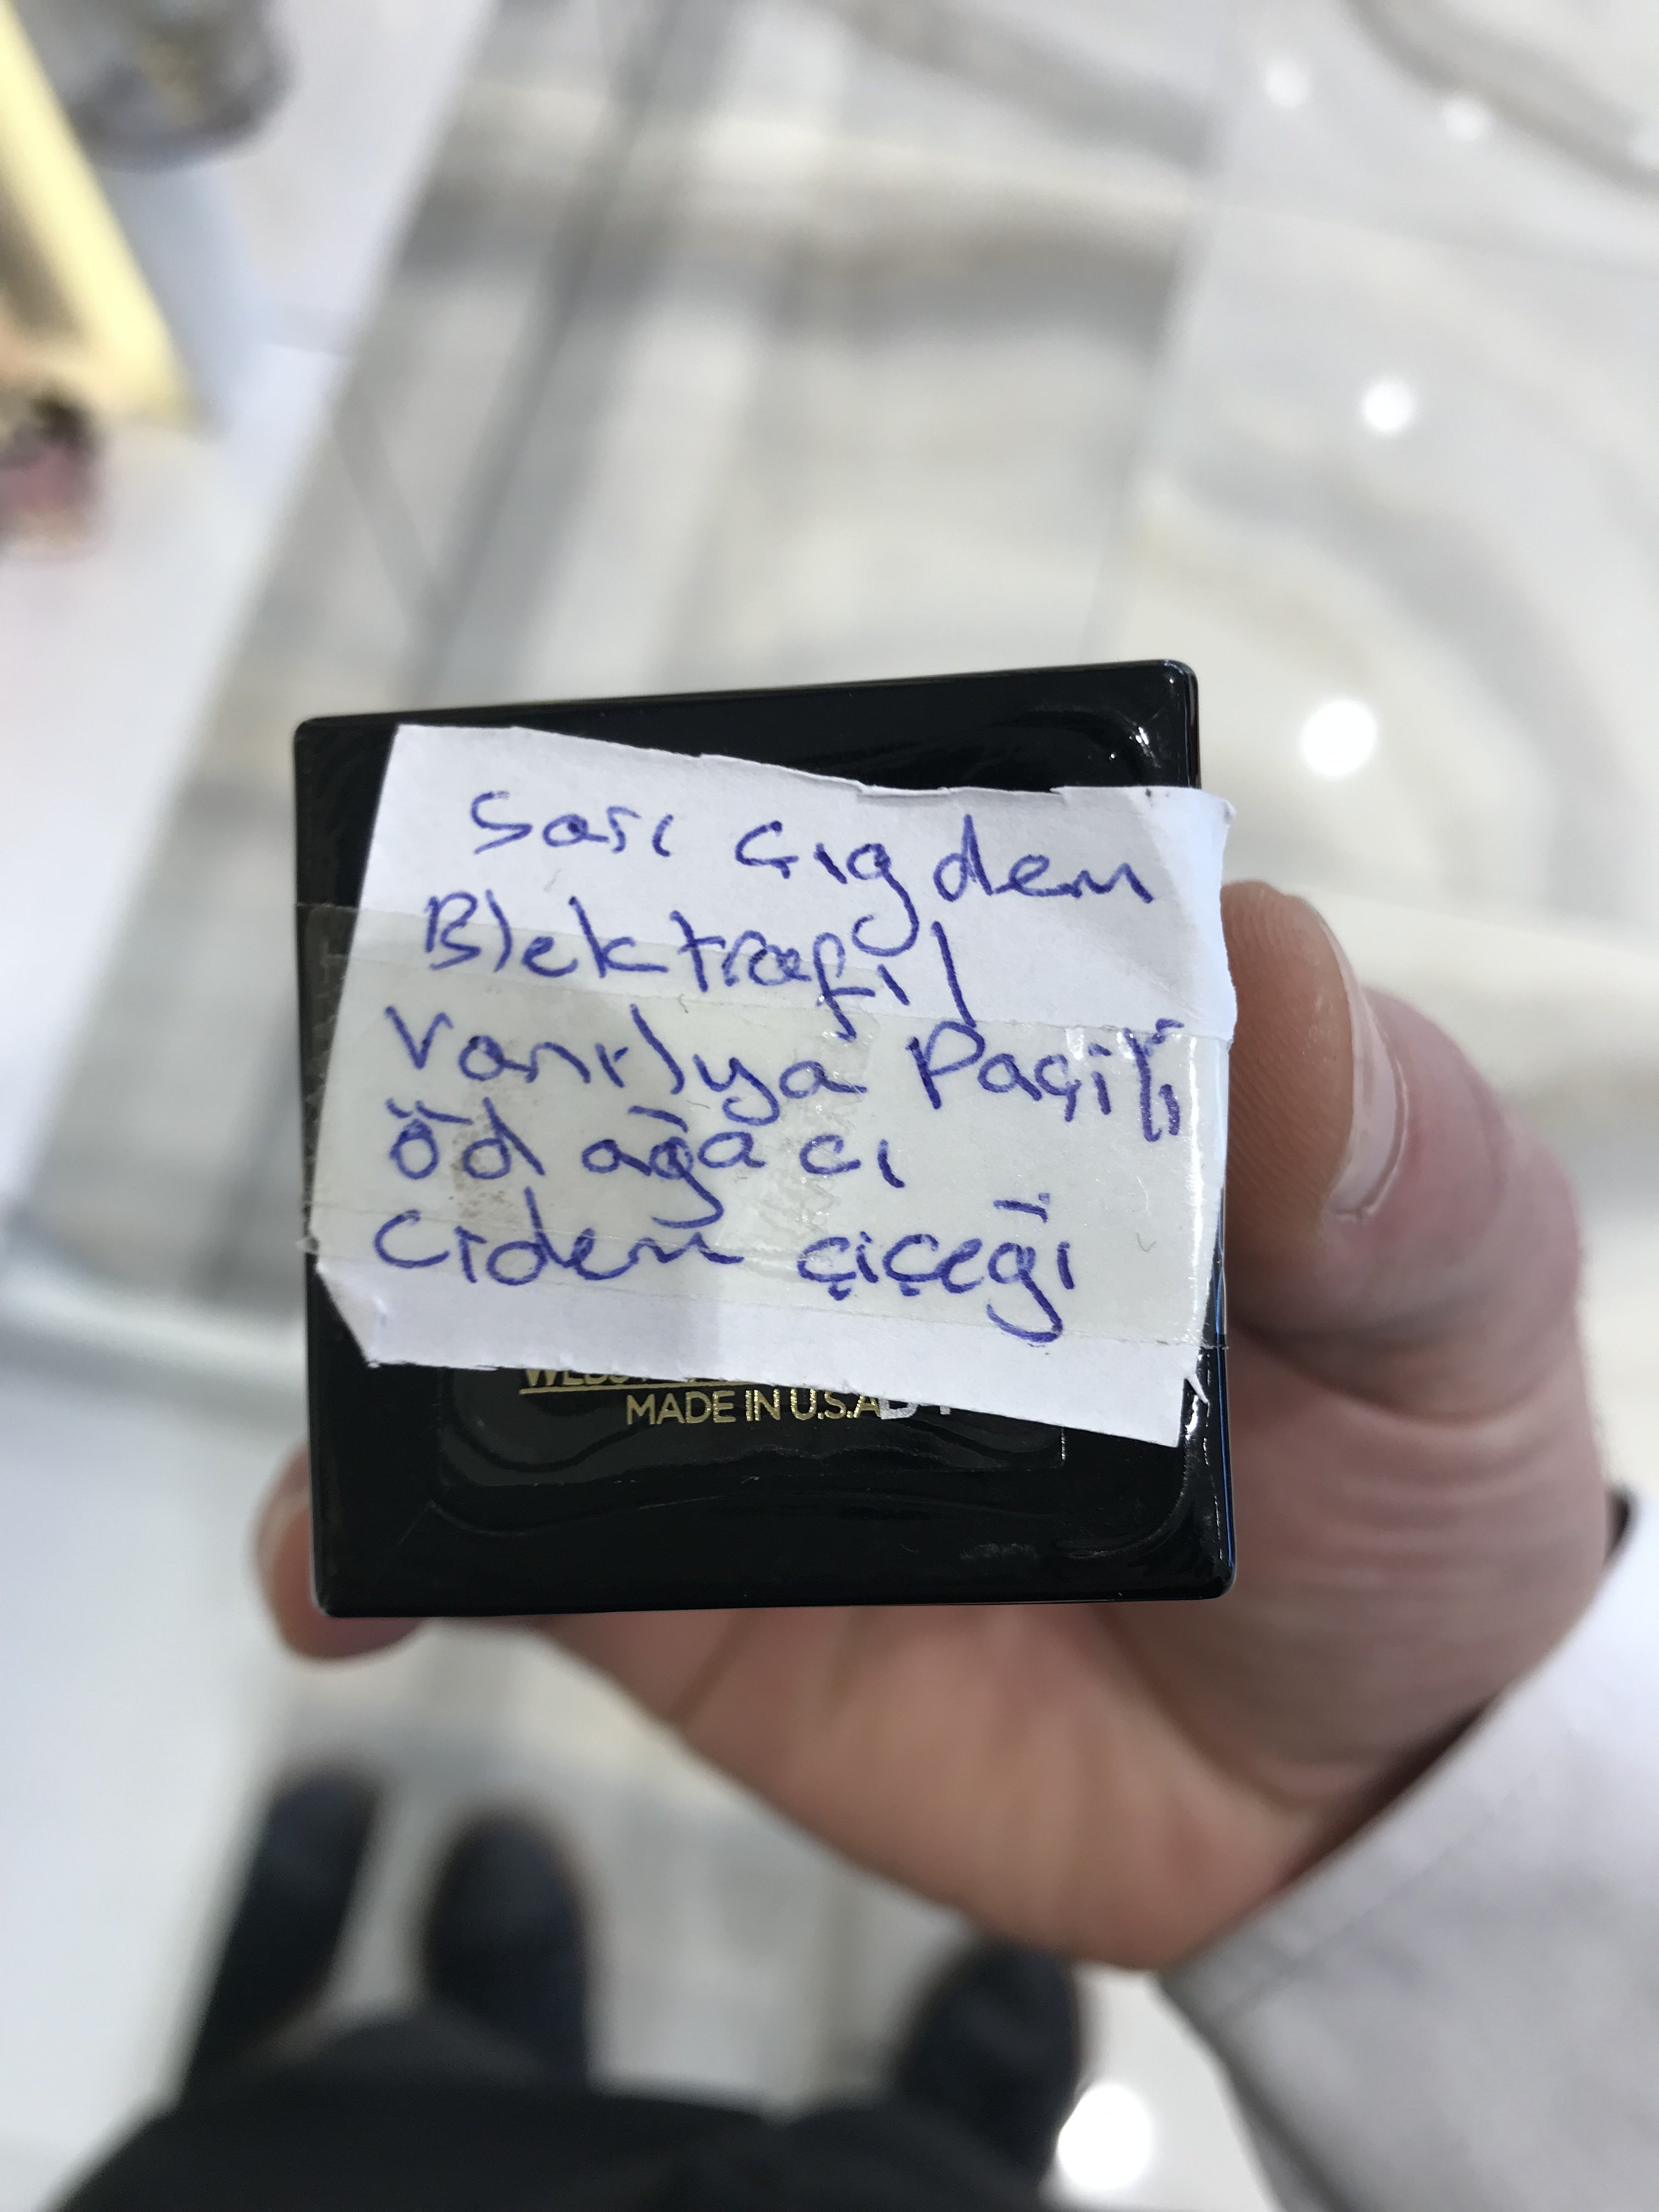 Sarı Çıgdem
Blektrafıl
Vanılya Paçili
öd ağacı
Cıdem çiçeği
MADE IN U.S.A